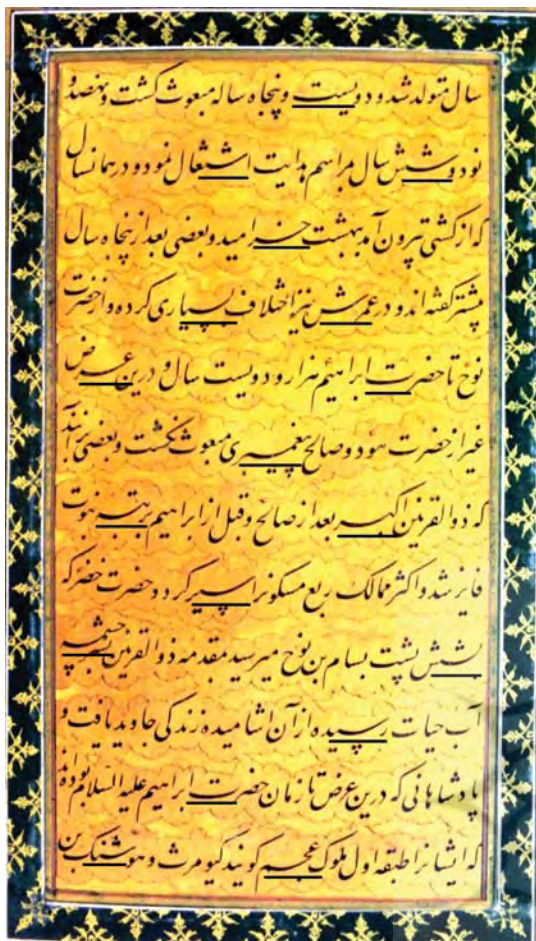 سال متولد شد و دویست و پنجاه ساله مبعوث کشت و نهصد و
نود و شش سال بمراسم هدایت اشتغال نمود و در همانسال
که از کشتی بیرون آمد ببهشت خرامید و بعضی بعد از پنجاه سال
بیشتر کفته اند و در عمرش نیز اختلاف بسیاری کرده و از حضرت
نوح تا حضرت ابراهیم هزار و دویست سال و درین عرض
غیر از حضرت هود و صالح پیغمبری مبعوث نکشت و بعضی برآنند
که ذوالقرنین اکبر بعد از صالح و قبل از ابراهیم برتبه نبوت
فایز شد و اکثر ممالک ربع مسکونرا سیر کرد و حضرت خضر که
بشش پشت بسام بن نوح میرسید مقدمه ذوالقرنین بچشمه
آب حیات رسیده از آن اشامیده زندکی جاوید یافت و
پادشاهانی که درین عرض تا زمان حضرت ابراهیم علیه السلام بوده اند
که ایشانرا طبقه اول ملوک عجم کویند کیومرث و هوشنک بن